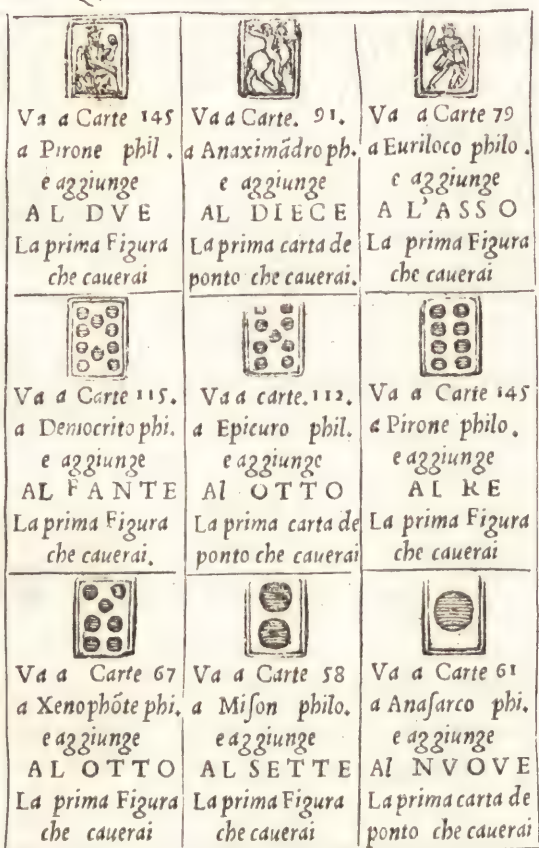 Va a Carte 145
a Pirone phil.
e aggiunge
AL DVE
La prima Figura
che cauerai
Va a Carte. 91.
a Anaximãdro ph.
e aggiunge
AL DIECE
La prima carta de
ponto che cauerai.
Va a Carte 79
a Euriloco philo.
e aggiunge
A L'ASSO
La prima Figura
che cauerai
Va a Carte 115.
a Democrito phi.
e aggiunge
AL FANTE
La prima Figura
che cauerai.
Va a carte. 112.
a Epicuro phil.
e aggiunge
Al OTTO
La prima carta de
ponto che cauerai
Va a Carte 145
a Pirone philo.
e aggiunge
AL RE
La prima Figura
che cauerai
Va a Carte 67
a Xenophõte phi.
e aggiunge
AL OTTO
La prima Figura
che cauerai
Va a Carte 58
a Miſon philo.
e aggiunge
AL SETTE
La prima Figura
che cauerai
Va a Carte 61
a Anaſarco phi.
e aggiunge
Al NVOVE
La prima carta de
ponto che cauerai